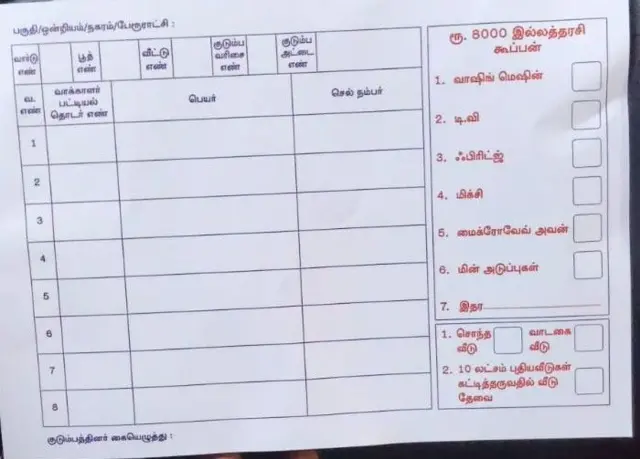 பகுதி/ஒன்றியம்/நகரம்/பேரூராட்சி :
வார்டு எண்
பூத் எண்
வீட்டு எண்
குடும்ப வரிசை எண்
குடும்ப அட்டை எண்
வ. எண்
வாக்காளர் பட்டியல் தொடர் எண்
பெயர்
செல் நம்பர்
1
2
3
4
5
6
7
8
குடும்பத்தினர் கையெழுத்து :
ரூ. 8000 இல்லத்தரசி
கூப்பன்
1. வாஷிங் மெஷின்
2. டி.வி
3. ஃபிரிட்ஜ்
4. மிக்சி
5. மைக்ரோவேவ் அவன்
6. மின் அடுப்புகள்
7. இதர
1. சொந்த வீடு
வாடகை வீடு
2. 10 லட்சம் புதியவீடுகள்
கட்டித்தருவதில் வீடு
தேவை